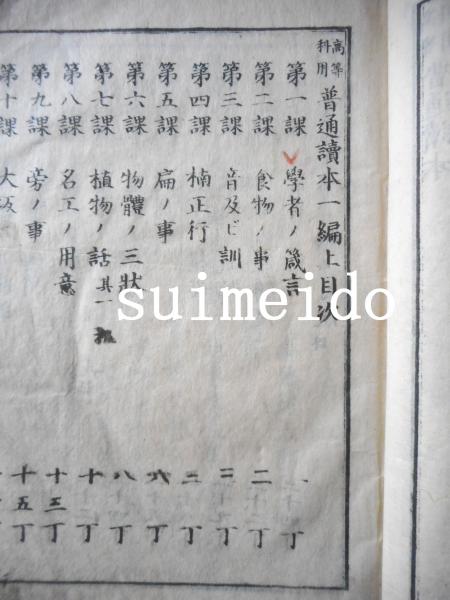 高等科用 普通讀本一編上目次
第一課 學者ノ箴言 一丁
第二課 食物ノ事 二丁
第三課 音及ビ訓 二丁
第四課 楠正行 三丁
第五課 扁ノ事 六丁
第六課 物體ノ三狀 八丁
第七課 植物ノ話其一 十丁
第八課 名工ノ用意 十三丁
第九課 旁ノ事 十五丁
第十課 大坂
suimeido